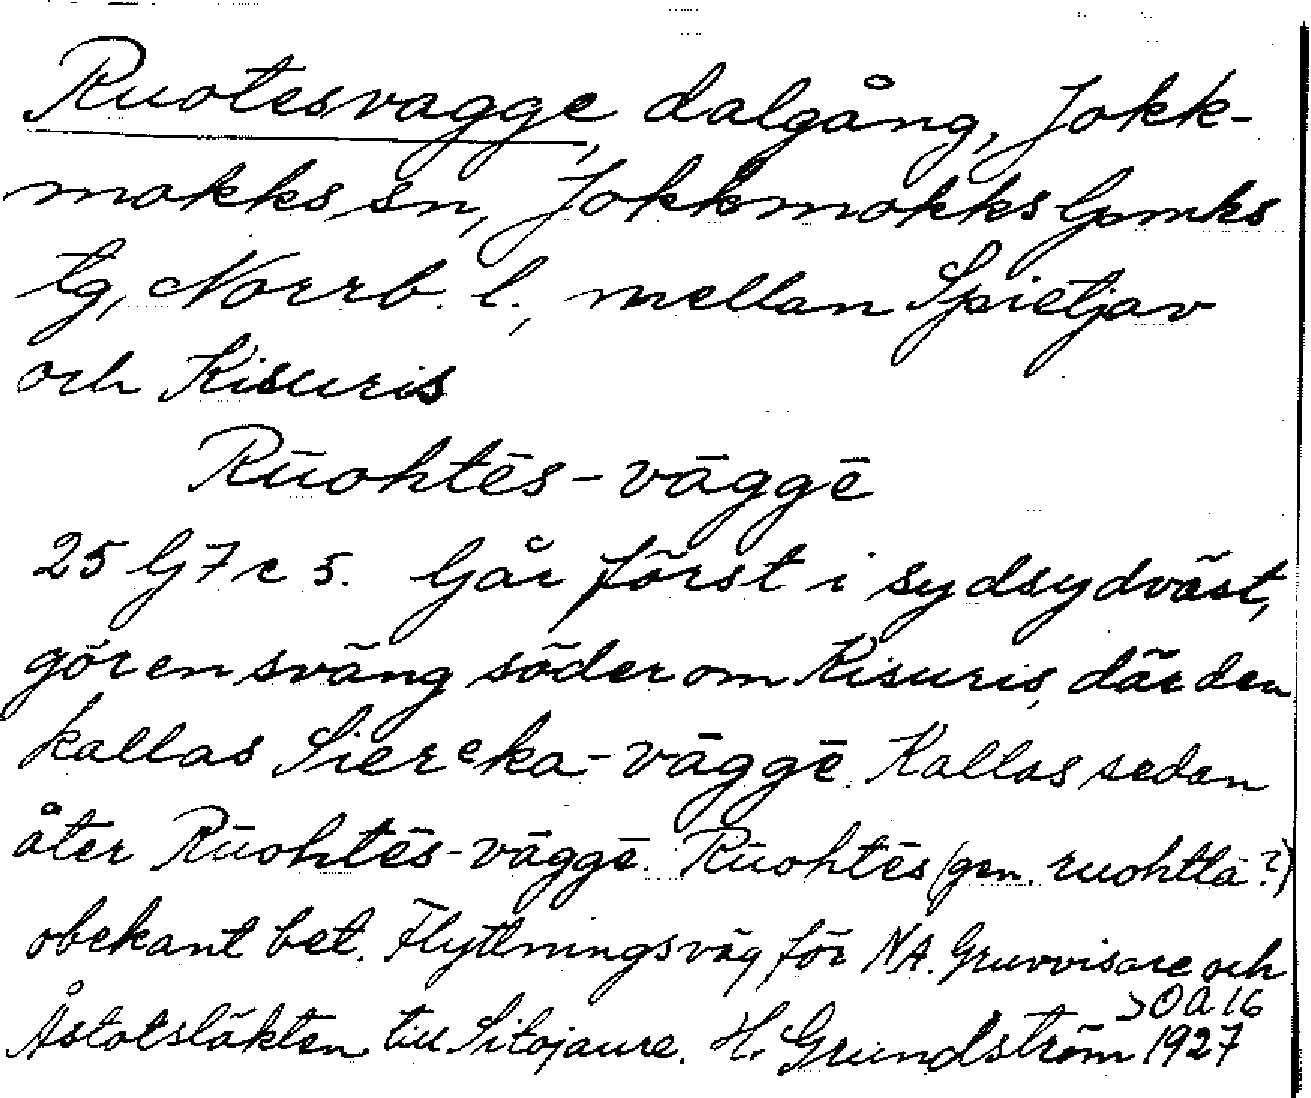 Ruotesvagge, dalgång, Jokk-
mokks sn, Jokkmokks lpmks
tg, Norrb. l., mellan Spietjav
och Kisuris
Rūohtēs-vāggē
25 G 7 c 5. Går först i sydsydväst,
gör en sväng söder om Kisuris, där den
kallas Sierᵉka-vāggē. Kallas sedan
åter Rūohtēs-vāggē. Rūohtēs (gen. ruohtta?)
obekant bet. Flyttningsväg för N.A. Gruvvisare och
Åstotsläkten till Sitojaure. H. Grundström 1927
>OA16